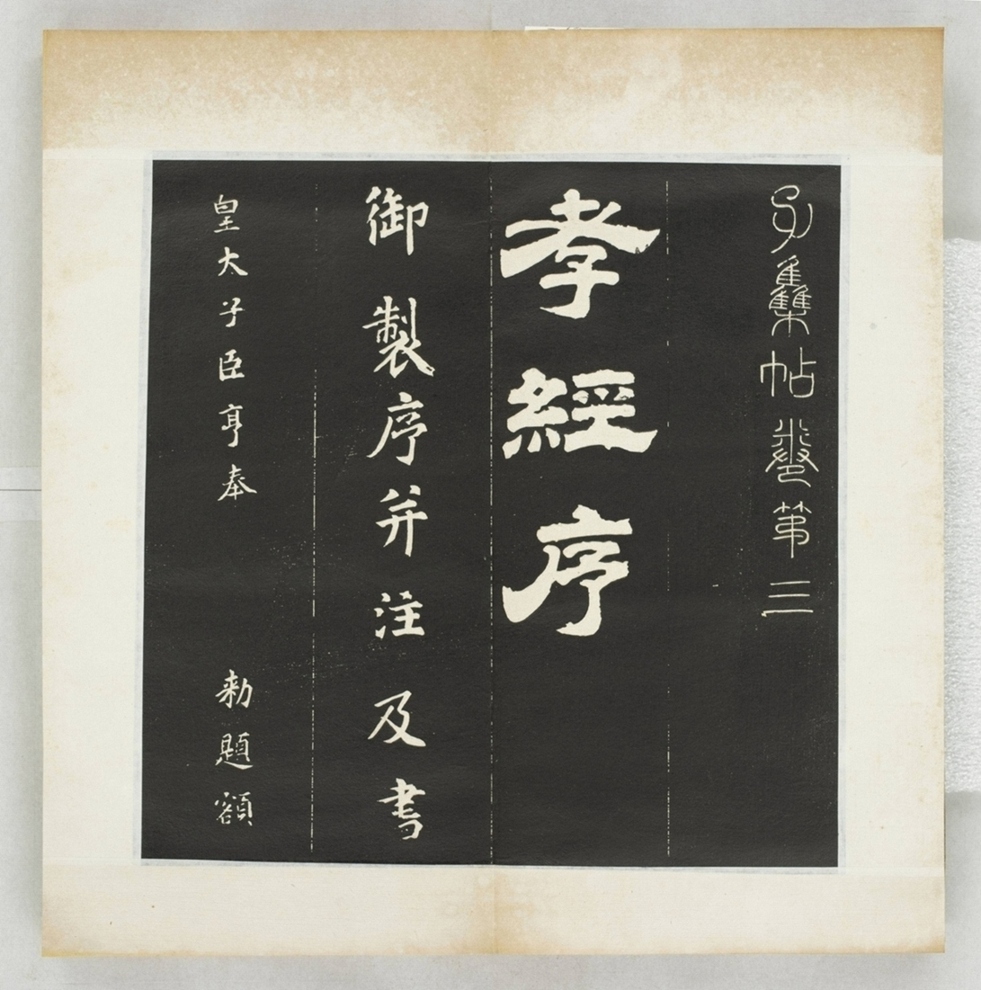 集帖卷第三
孝經序
御製序并注及書
皇大子臣亨奉 勅題額